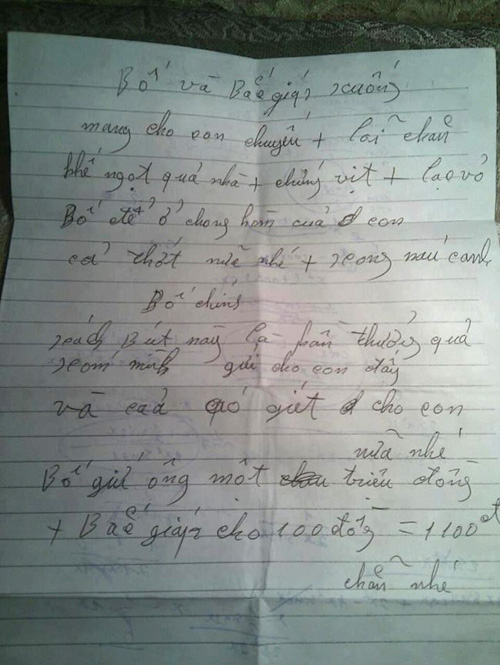 Bố và Baế giáp xuống
mang cho con chuyến + lai chẵn
khế ngọt quả nhà + chứng vịt + lạo vỏ
Bố để ở chong hòm của con
cả thớt nữa nhé + xong nấu canh
Bố ching
sách Bút này là phần thưởng quả
xóm mình gửi cho con đấy
và cả gó giét cho con
nữa nhé
Bố gửi ông một triệu đồng
+ Baế giáp cho 100 đồng = 1100đ
chẵn nhé